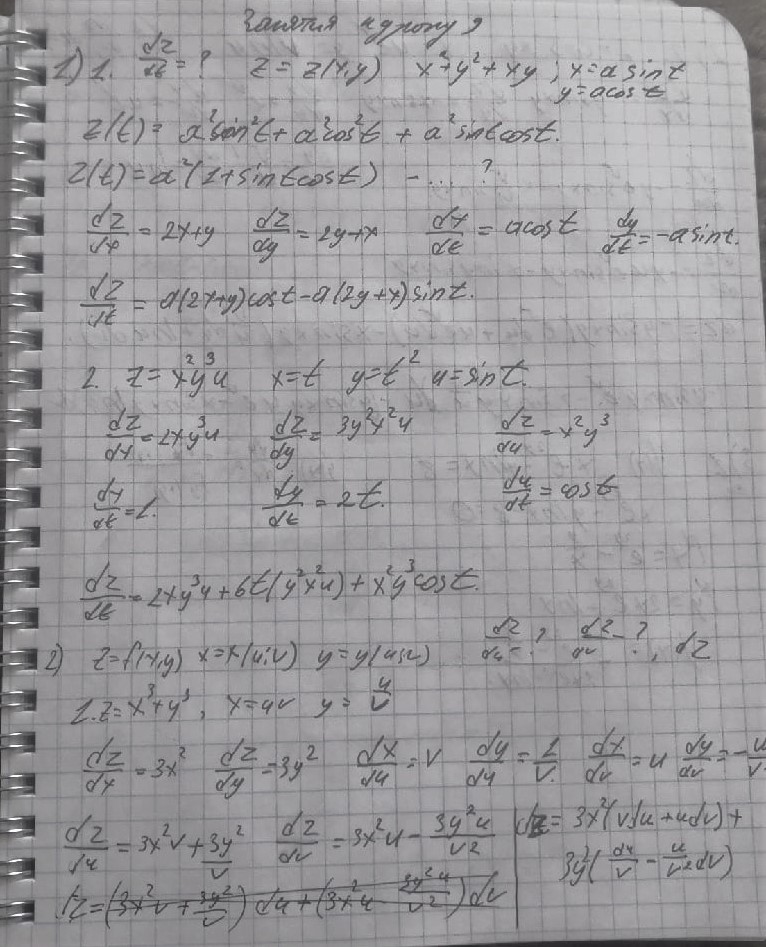 Занятия к уроку 9
1) 1. dz/dt = ? z = z(x,y) x²+y²+xy ; x = a sint
y = acost
z(t) = a²sin²t + a²cos²t + a²sintcost.
z(t) = a²(1+sintcost) - .... ?
dz/dx = 2x+y dz/dy = 2y+x dx/dt = acost dy/dt = -asint.
dz/dt = a(2x+y)cost - a(2y+x)sint.
2. z = x²y³u x = t y = t² u = sint.
dz/dx = 2xy³u dz/dy = 3y²x²u dz/du = x²y³
dx/dt = 1. dy/dt = 2t. du/dt = cost
dz/dt = 2xy³u + 6t(y²x²u) + x²y³cost.
2) z = f(x,y) x = x(u;v) y = y(u;v) dz/du = ? dz/dv - ?, dz
1. z = x³+y³, x = uv y = u/v
dz/dx = 3x² dz/dy = 3y² dx/du = v dy/du = 1/v. dx/dv = u dy/dv = -u/v
dz/du = 3x²v + 3y²/v dz/dv = 3x²u - 3y²u/v² dz = 3x²(vdu+udv) +
3y²(du/v - u/v² dv)
dz = (3x²v + 3y²/v) du + (3x²u - 3y²u/v²) dv